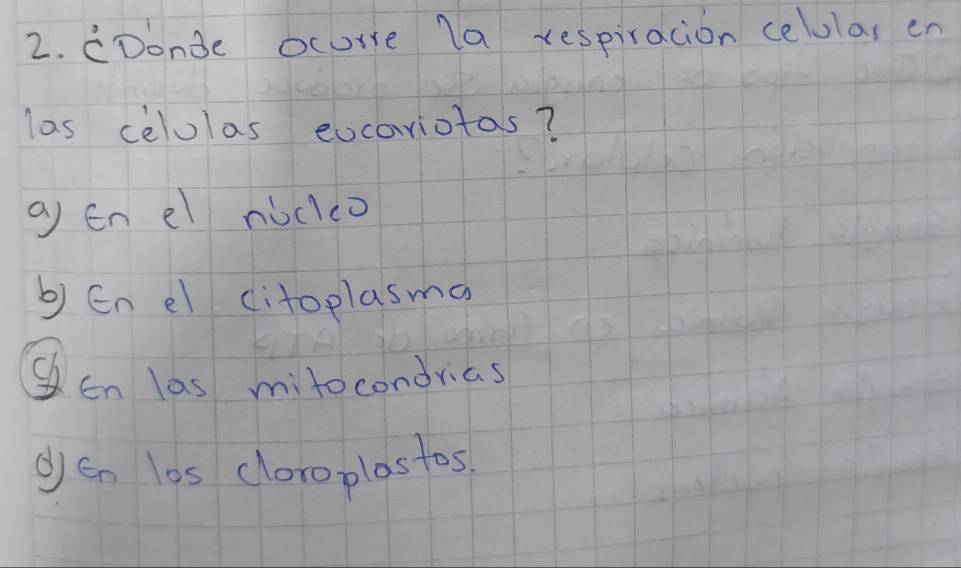 2. ¿Dónde ocurre la respiración celular en
las células eucariotas?
a) En el núcleo
b) En el citoplasma
c) En las mitocondrias
d) En los cloroplastos.